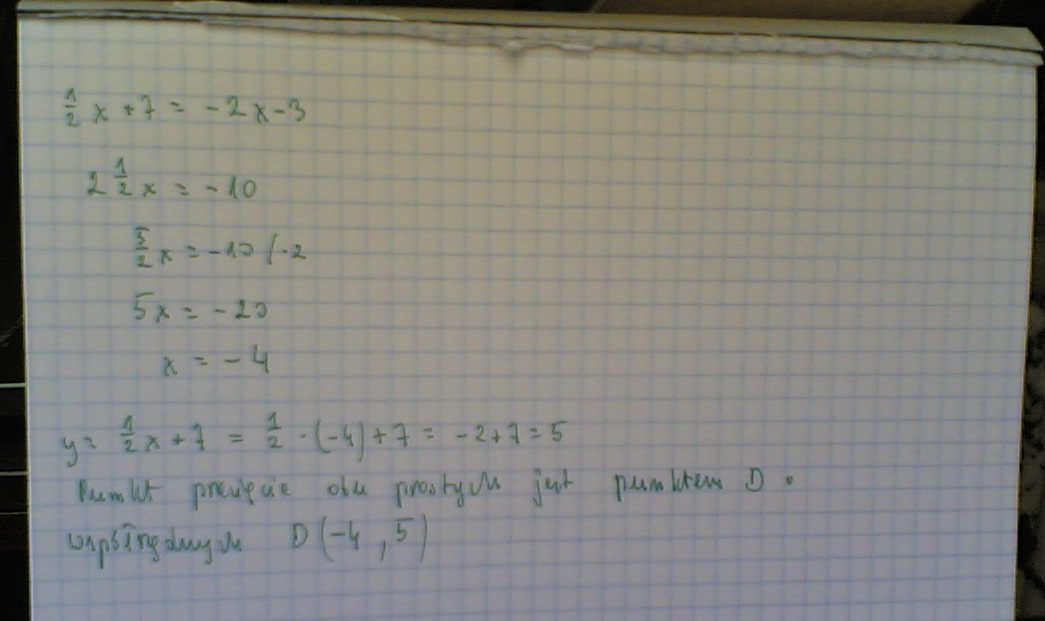 ½x + 7 = -2x - 3
2½x = -10
5/2x = -10 /·2
5x = -20
x = -4
y = ½x + 7 = ½ · (-4) + 7 = -2 + 7 = 5
Punkt przecięcie obu prostych jest punktem D o
współrzędnych D (-4, 5)